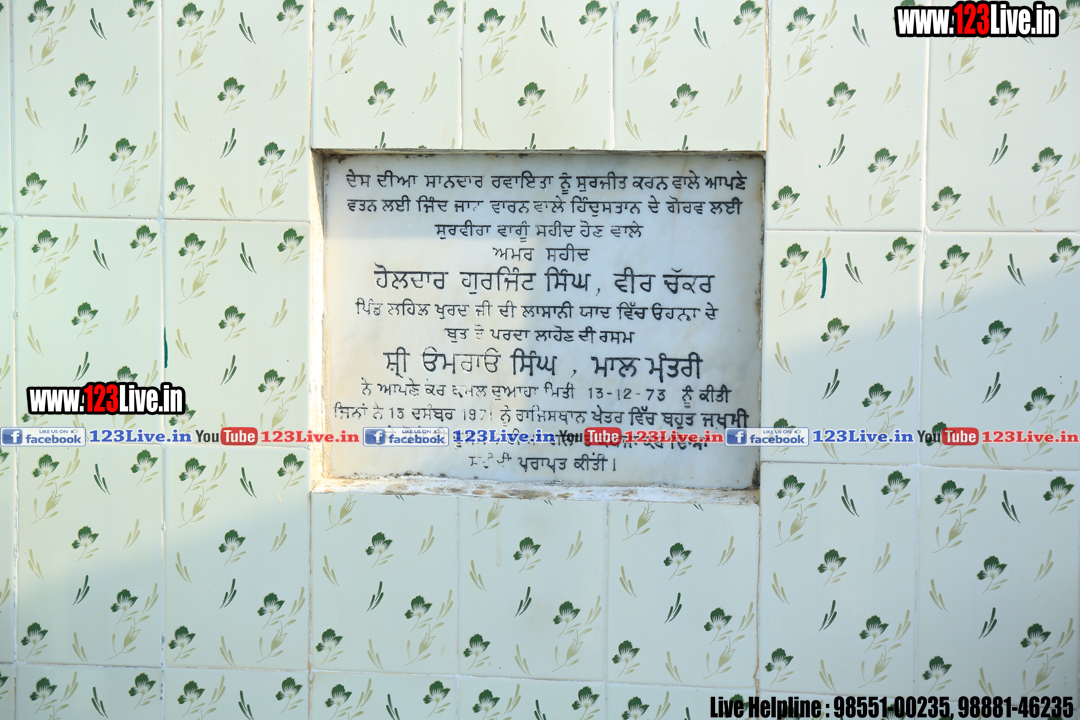 www.123Live.in
ਦੇਸ ਦੀਆ ਸਾਨਦਾਰ ਰਵਾਇਤਾ ਨੂੰ ਸੁਰਜੀਤ ਕਰਨ ਵਾਲੇ ਆਪਣੇ
ਵਤਨ ਲਈ ਜਿੰਦ ਜਾਨ ਵਾਰਨ ਵਾਲੇ ਹਿੰਦੁਸਤਾਨ ਦੇ ਗੋਰਵ ਲਈ
ਸੁਰਵੀਰਾ ਵਾਗੂੰ ਸਹੀਦ ਹੋਣ ਵਾਲੇ
ਅਮਰ ਸਹੀਦ
ਹੋਲਦਾਰ ਗੁਰਜਿੰਟ ਸਿੰਘ, ਵੀਰ ਚੱਕਰ
ਪਿੰਡ ਲਹਿਲ ਖੁਰਦ ਜੀ ਦੀ ਲਾਸਾਨੀ ਯਾਦ ਵਿੱਚ ਓਹਨਾ ਦੇ
ਬੁਤ ਤੋ ਪਰਦਾ ਲਾਹੋਣ ਦੀ ਰਸਮ
ਸ਼੍ਰੀ ਓਮਰਾਓ ਸਿੰਘ , ਮਾਲ ਮੰਤਰੀ
ਨੇ ਆਪਣੇ ਕਰ ਕਮਲ ਦੁਆਹਾ ਮਿਤੀ 13-12-73 ਨੂੰ ਕੀਤੀ
ਜਿਨਾਂ ਨੇ 13 ਦਸੰਬਰ 1971 ਨੂੰ ਰਾਜਿਸਥਾਨ ਖੇਤਰ ਵਿੱਚ ਬਹੁਤ ਜਖਮੀ
ਸਹੀਦੀ ਪਰਾਪਤ ਕੀਤੀ।
www.123Live.in
LIKE US ON facebook 123Live.in YouTube 123Live.in LIKE US ON facebook 123Live.in YouTube 123Live.in LIKE US ON facebook 123Live.in YouTube 123Live.in
Live Helpline : 98551-00235, 98881-46235